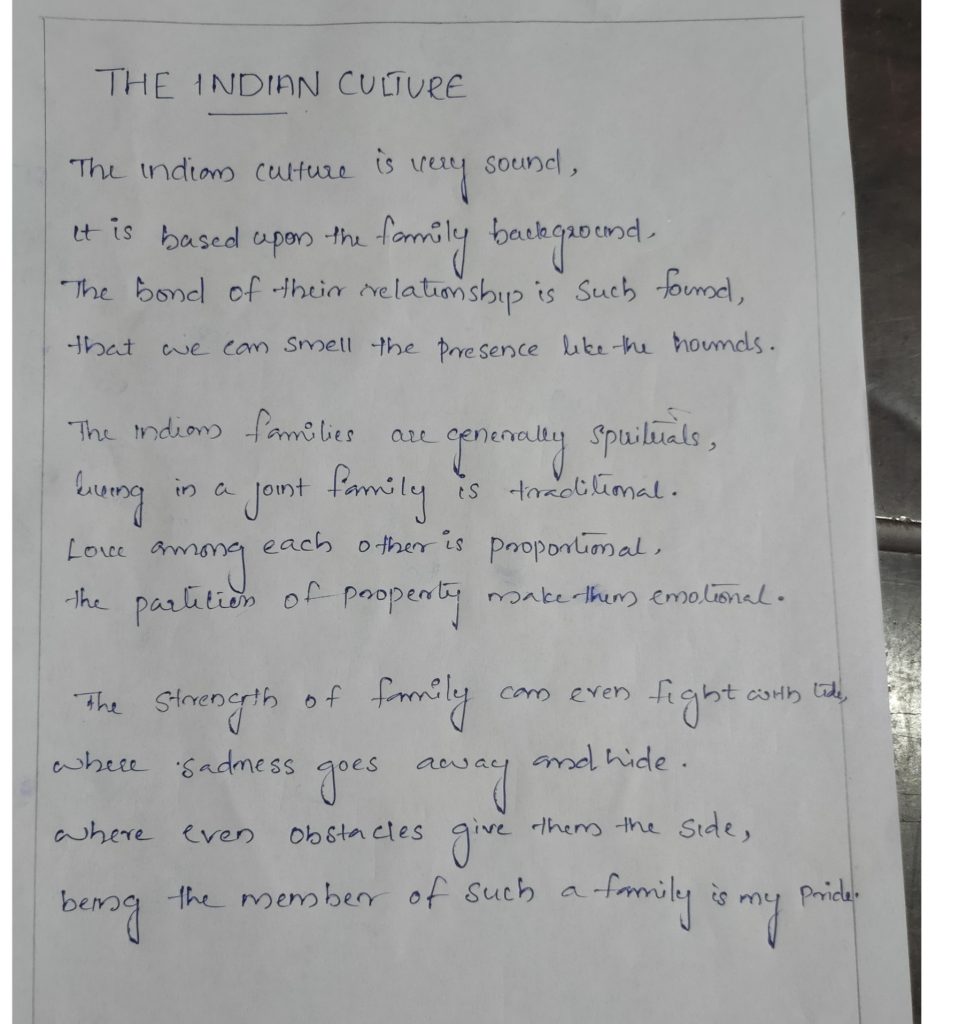 THE INDIAN CULTURE
The indian culture is very sound,
it is based upon the family background.
The bond of their relationship is such found,
that we can smell the presence like the hounds.
The indian families are generally spirituals,
living in a joint family is traditional.
Love among each other is proportional,
the partition of property make them emotional.
The strength of family can even fight with tide,
where sadness goes away and hide.
where even obstacles give them the side,
being the member of such a family is my pride.